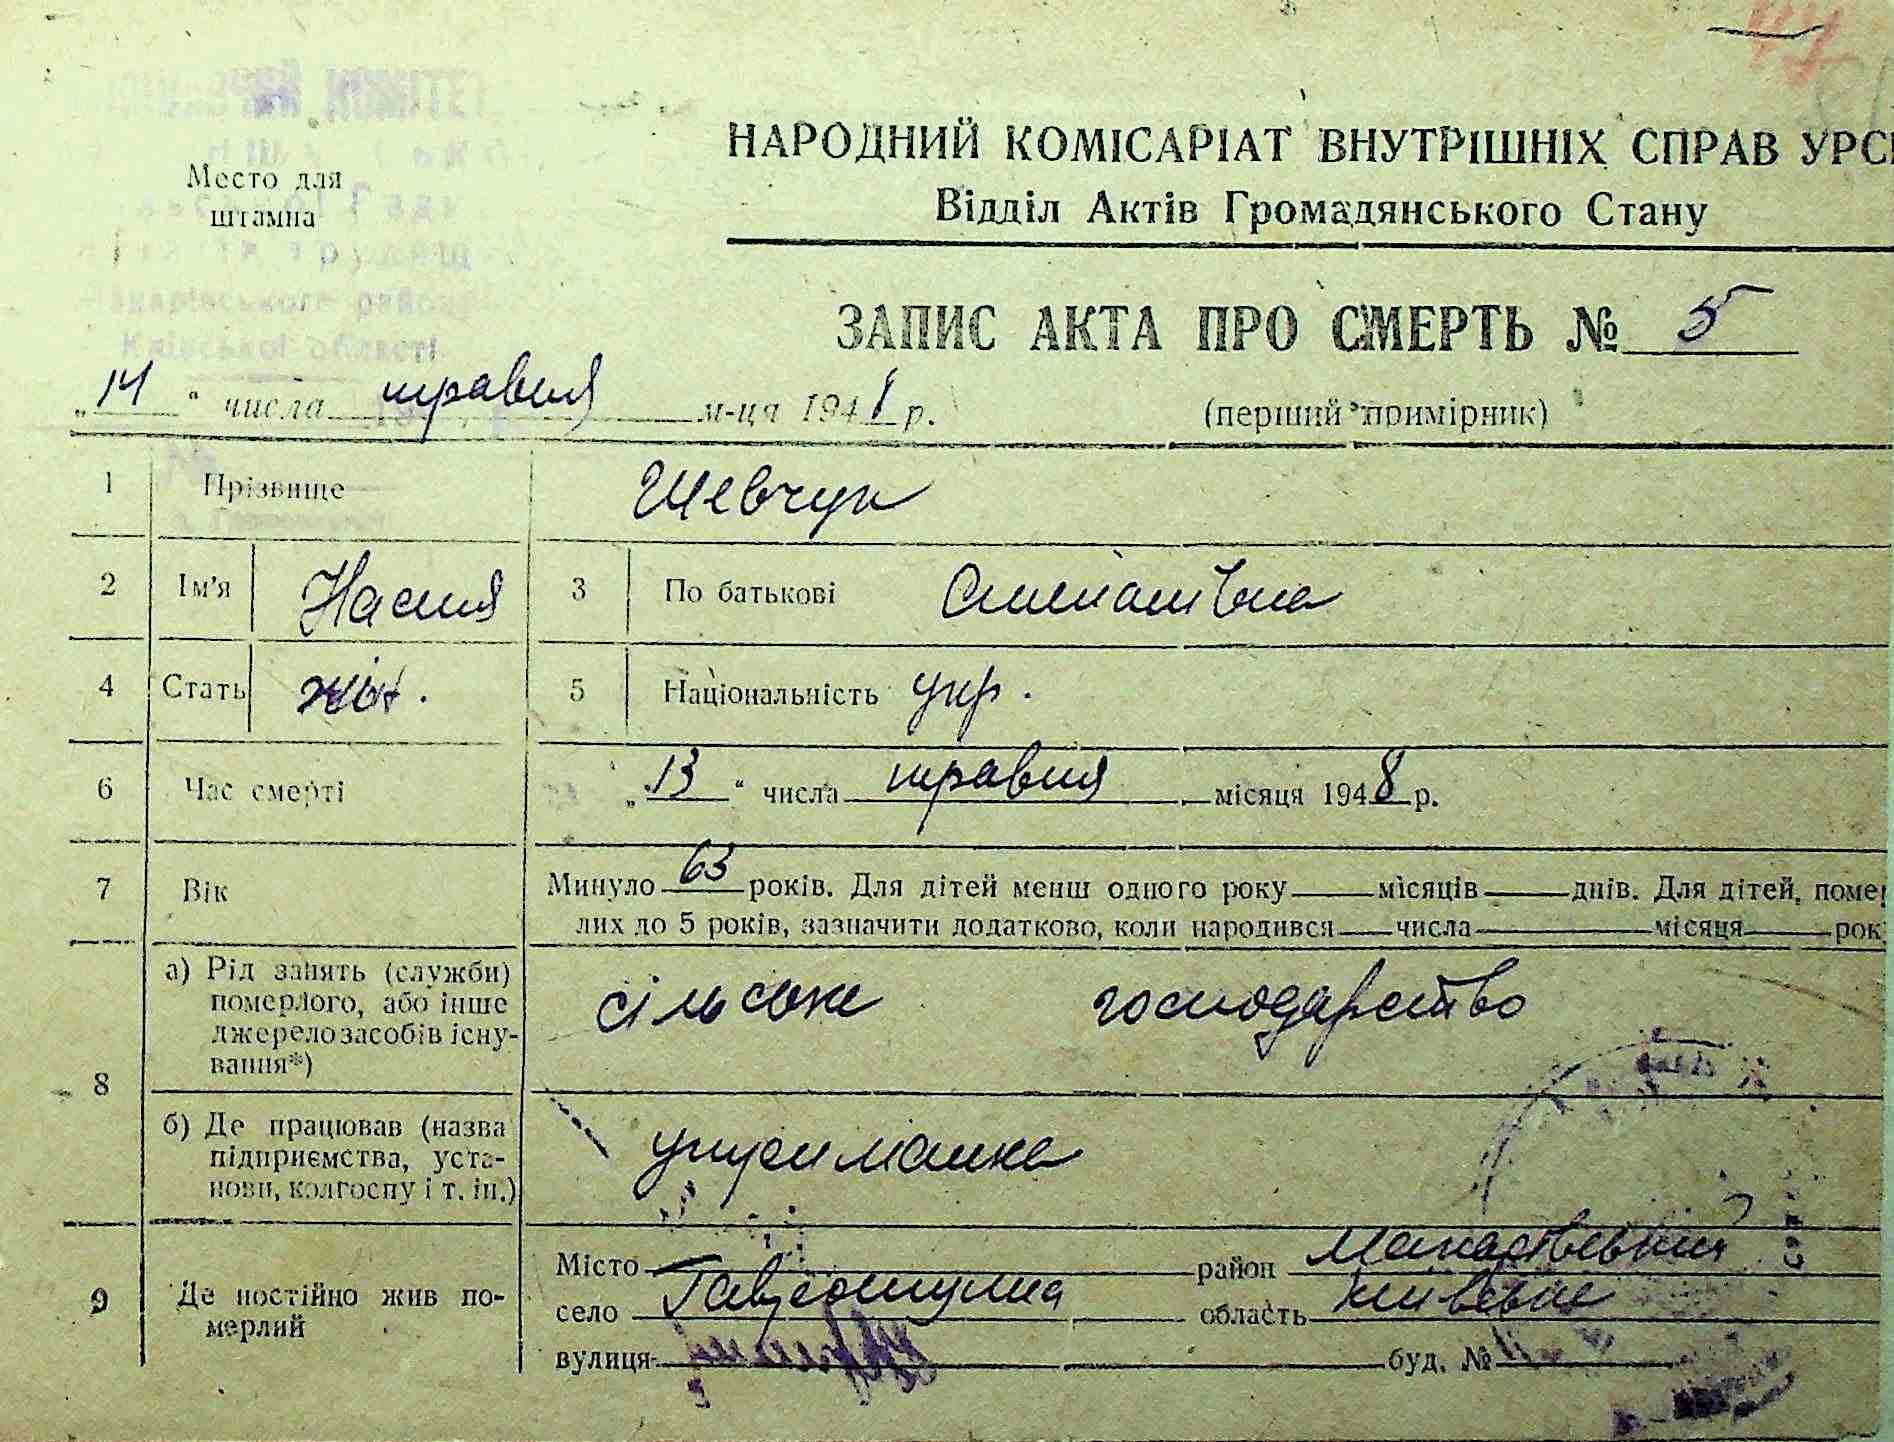 КОМІТЕТ
Место для
штампа
Макарівського району
Київської області
НАРОДНИЙ КОМІСАРІАТ ВНУТРІШНІХ СПРАВ УРСР
Відділ Актів Громадянського Стану
ЗАПИС АКТА ПРО СМЕРТЬ № 5
„14“ числа травня м-ця 1948 р.
(перший примірник)
1 Прізвище Шевчук
2 Ім'я Настя 3 По батькові Степанівна
4 Стать жін. 5 Національність укр.
6 Час смерті „13“ числа травня місяця 1948 р.
7 Вік Минуло 63 років. Для дітей менш одного року місяців днів. Для дітей, помер
лих до 5 років, зазначити додатково, коли народився числа місяця рок
8 а) Рід занять (служби)
померлого, або інше
джерело засобів існу-
вання*)
сільське господарство
б) Де працював (назва
підприємства, уста-
нови, колгоспу і т. ін.)
утриманка
9 Де постійно жив по-
мерлий
Місто район Макарівський
село Гавронщина область Київська
вулиця буд. №